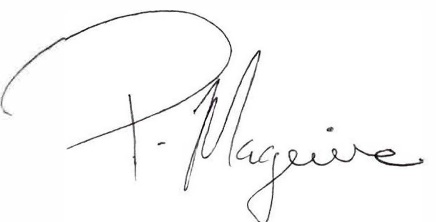 P. Maguire